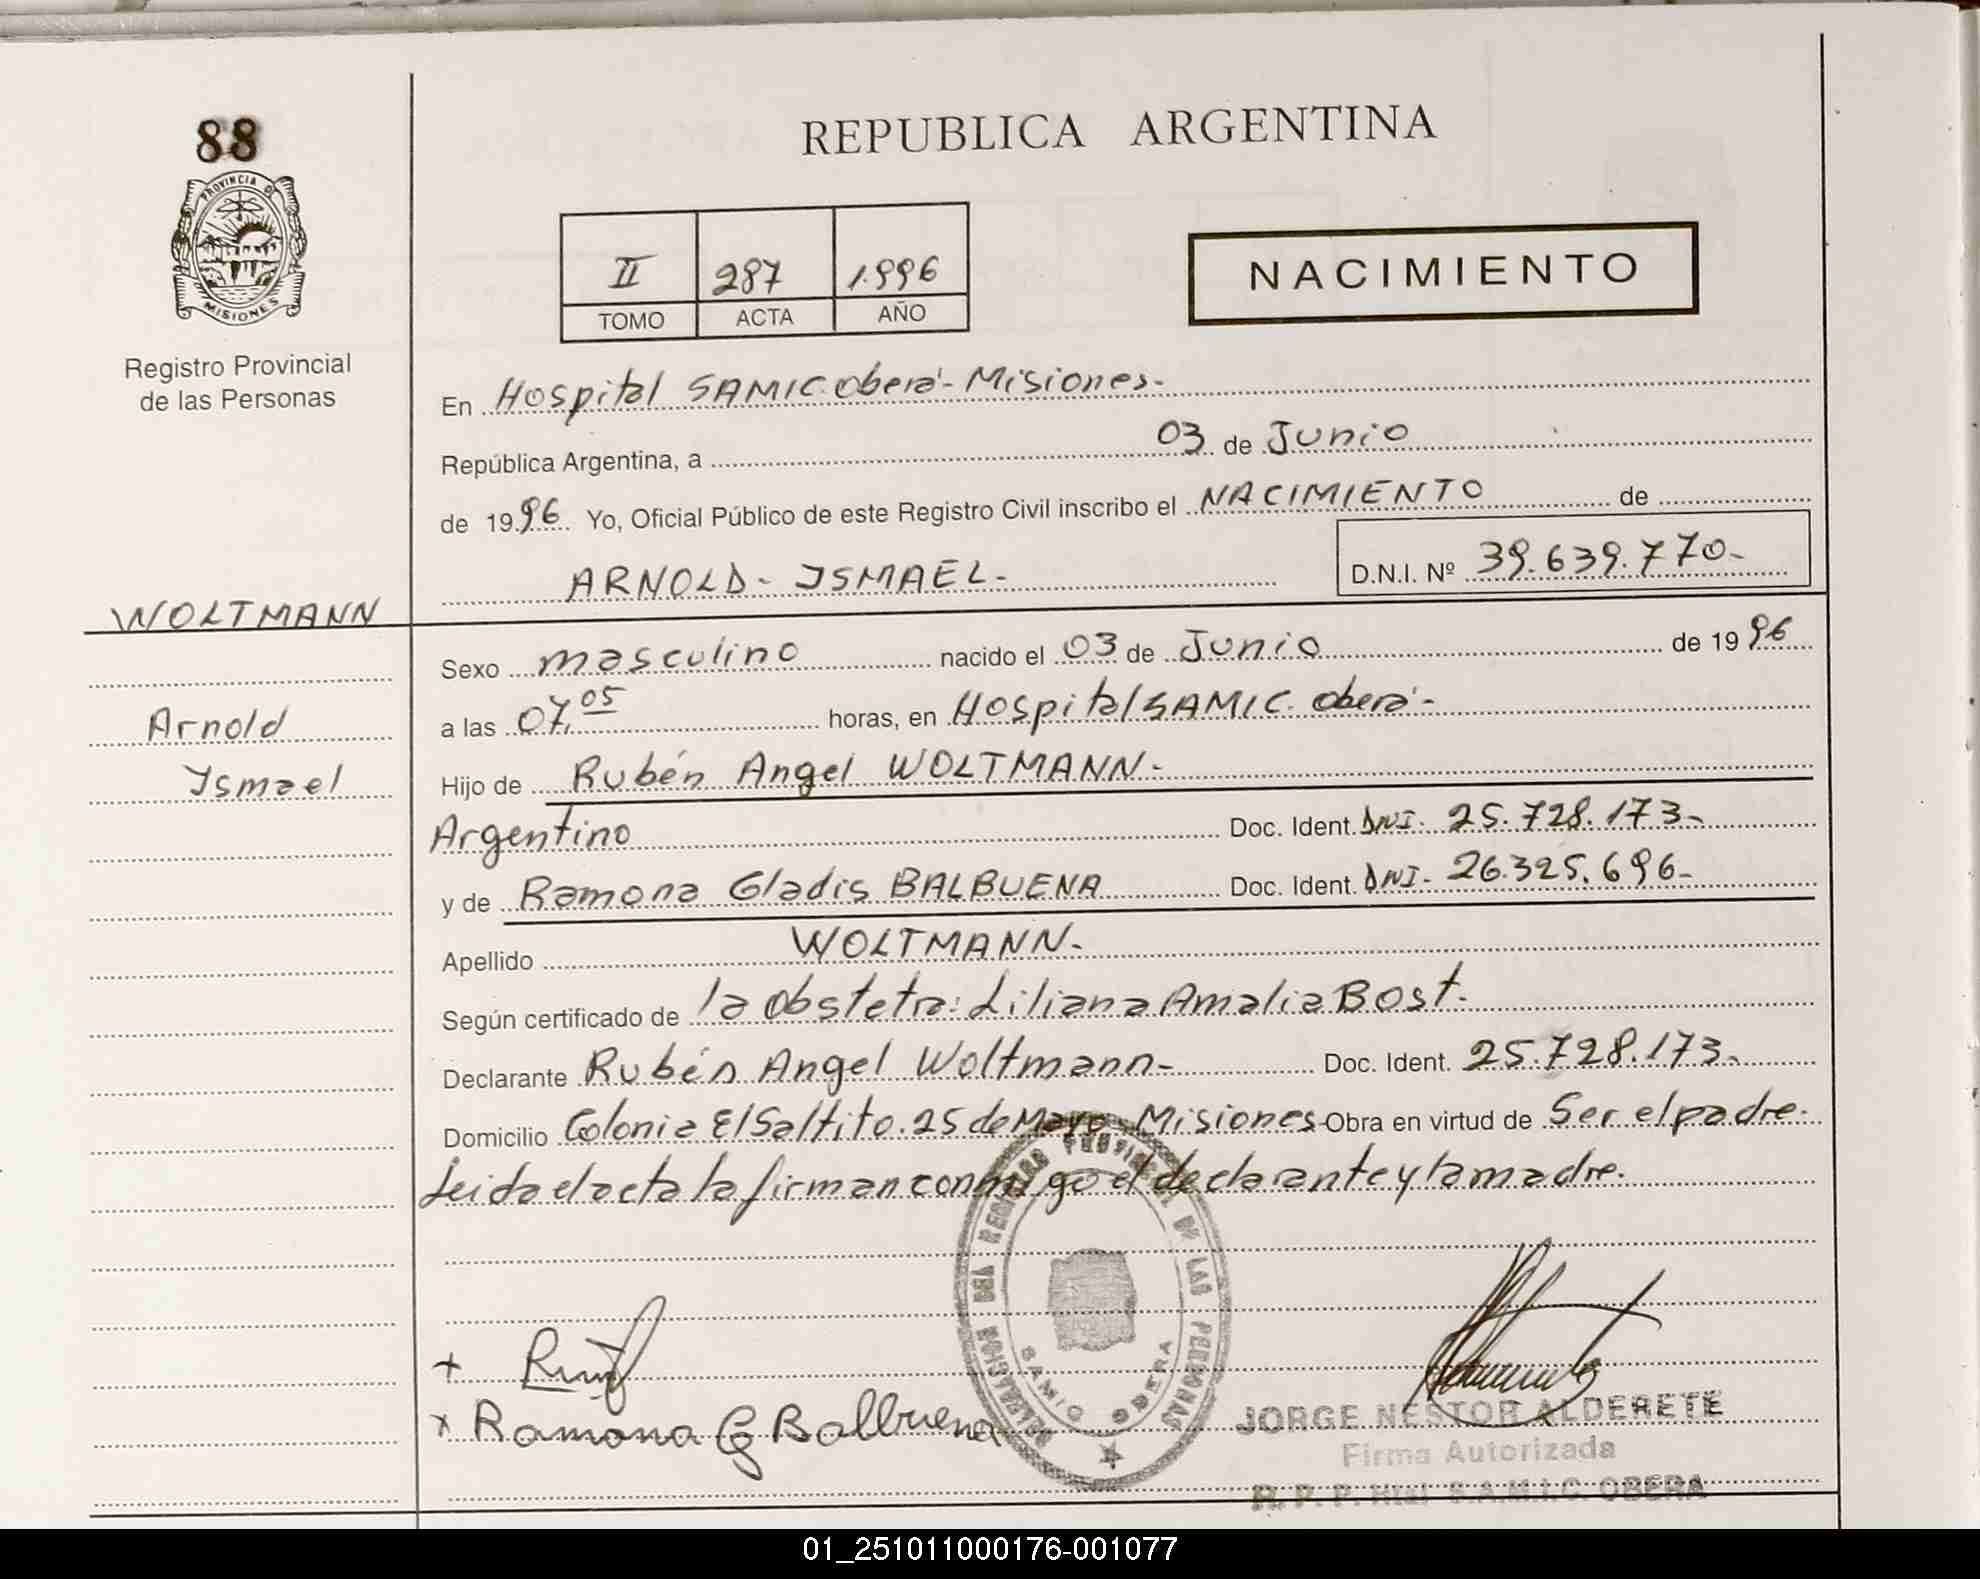 88
PROVINCIA DE
MISIONES
Registro Provincial
de las Personas
WOLTMANN
Arnold
Ismael
REPUBLICA ARGENTINA
II 287 1.996
TOMO ACTA AÑO
NACIMIENTO
En Hospital SAMIC. Oberá - Misiones.
República Argentina, a 03 de Junio
de 1996 Yo, Oficial Público de este Registro Civil inscribo el NACIMIENTO de
ARNOLD - ISMAEL - D.N.I. Nº 39.639.770-
Sexo masculino nacido el 03 de Junio de 1996
a las 07,05 horas, en Hospital SAMIC. Oberá -
Hijo de Rubén Angel WOLTMANN -
Argentino Doc. Ident. DNI. 25.728.173-
y de Ramona Gladis BALBUENA Doc. Ident. DNI- 26.325.696-
Apellido WOLTMANN-
Según certificado de la obstetra: Liliana Amalia Bost.
Declarante Rubén Angel Woltmann- Doc. Ident. 25.728.173-
Domicilio Colonia El Saltito. 25 de Mayo - Misiones Obra en virtud de Ser el padre.
Leida el acta la firman conmigo el declarante y la madre.
DELEGACION DEL REGISTRO PROVINCIAL DE LAS PERSONAS
SAMIC OBERA
+
x Ramona G Balbuena
JORGE NESTOR ALDERETE
Firma Autorizada
R. P. P. Htal S.A.M.I.C. OBERA
01_251011000176-001077